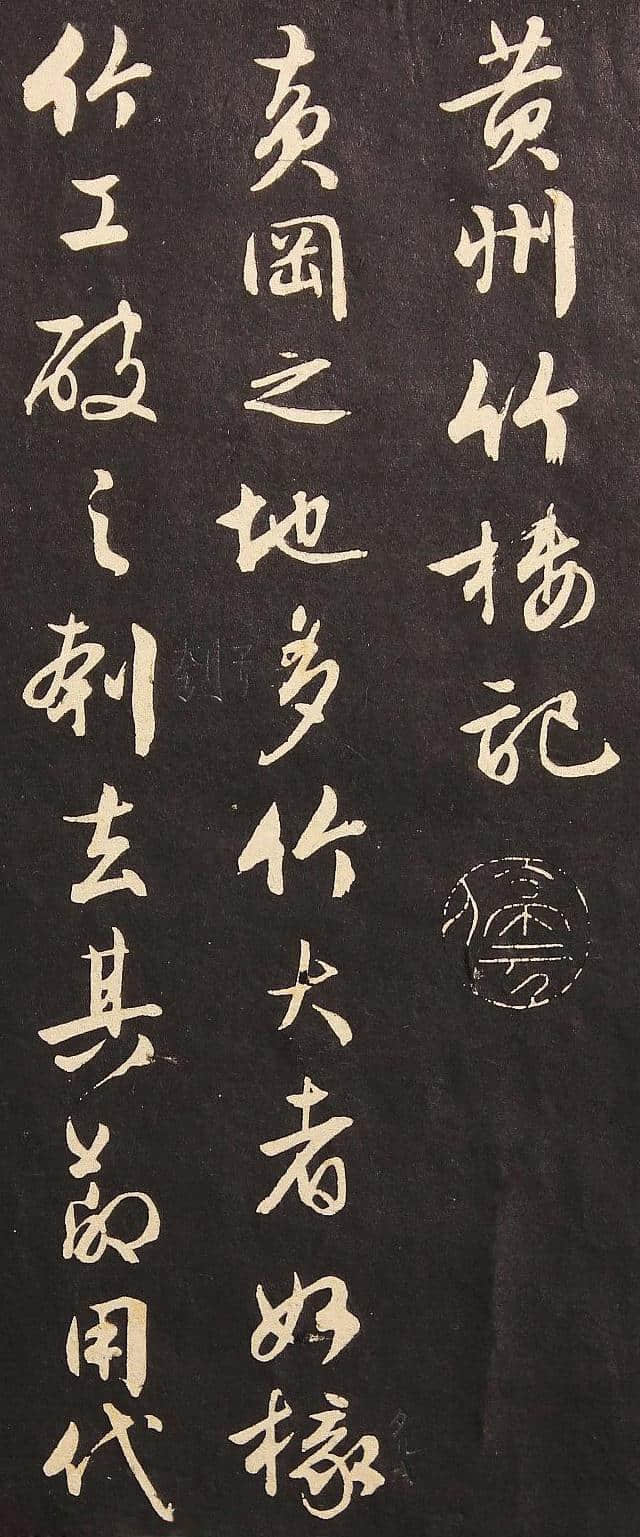 黄州竹樓記
黄岡之地多竹大者如椽
竹工破之刳去其節用代